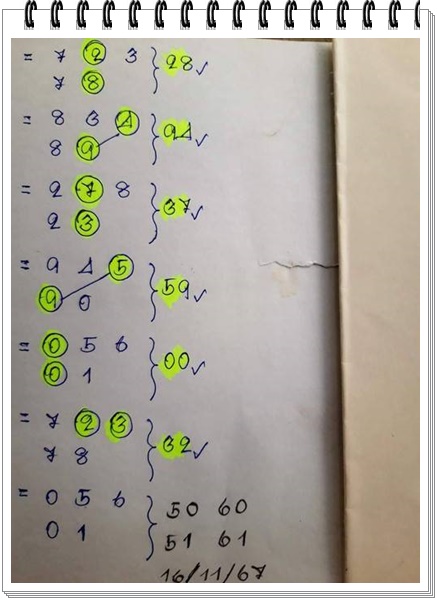 = 7 2 3 } 28 ✓
7 8
= 8 3 4 } 94 ✓
8 9
= 2 7 8 } 37 ✓
2 3
= 9 4 5 } 59 ✓
9 0
= 0 5 6 } 00 ✓
0 1
= 7 2 3 } 32 ✓
7 8
= 0 5 6 } 50 60
0 1 51 61
16/11/67